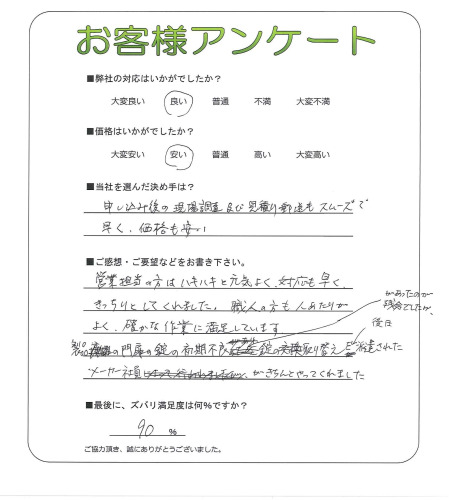 お客様アンケート
■弊社の対応はいかがでしたか?
大変良い 良い 普通 不満 大変不満
■価格はいかがでしたか?
大変安い 安い 普通 高い 大変高い
■当社を選んだ決め手は?
申し込み後の現場調査及び見積り郵送もスムーズで
早く、価格も安い
■ご感想・ご要望などをお書き下さい。
営業担当の方はハキハキと元気よく、対応も早く、
きっちりとしてくれました。職人の方も人あたりが
よく、確かな作業に満足しています
の門扉の錠の初期不良 錠の 取り替え 派遣された
があったのが
残念でしたが、
後日
メーカー社員 がきちんとやってくれました
■最後に、ズバリ満足度は何%ですか?
90 %
ご協力頂き、誠にありがとうございました。